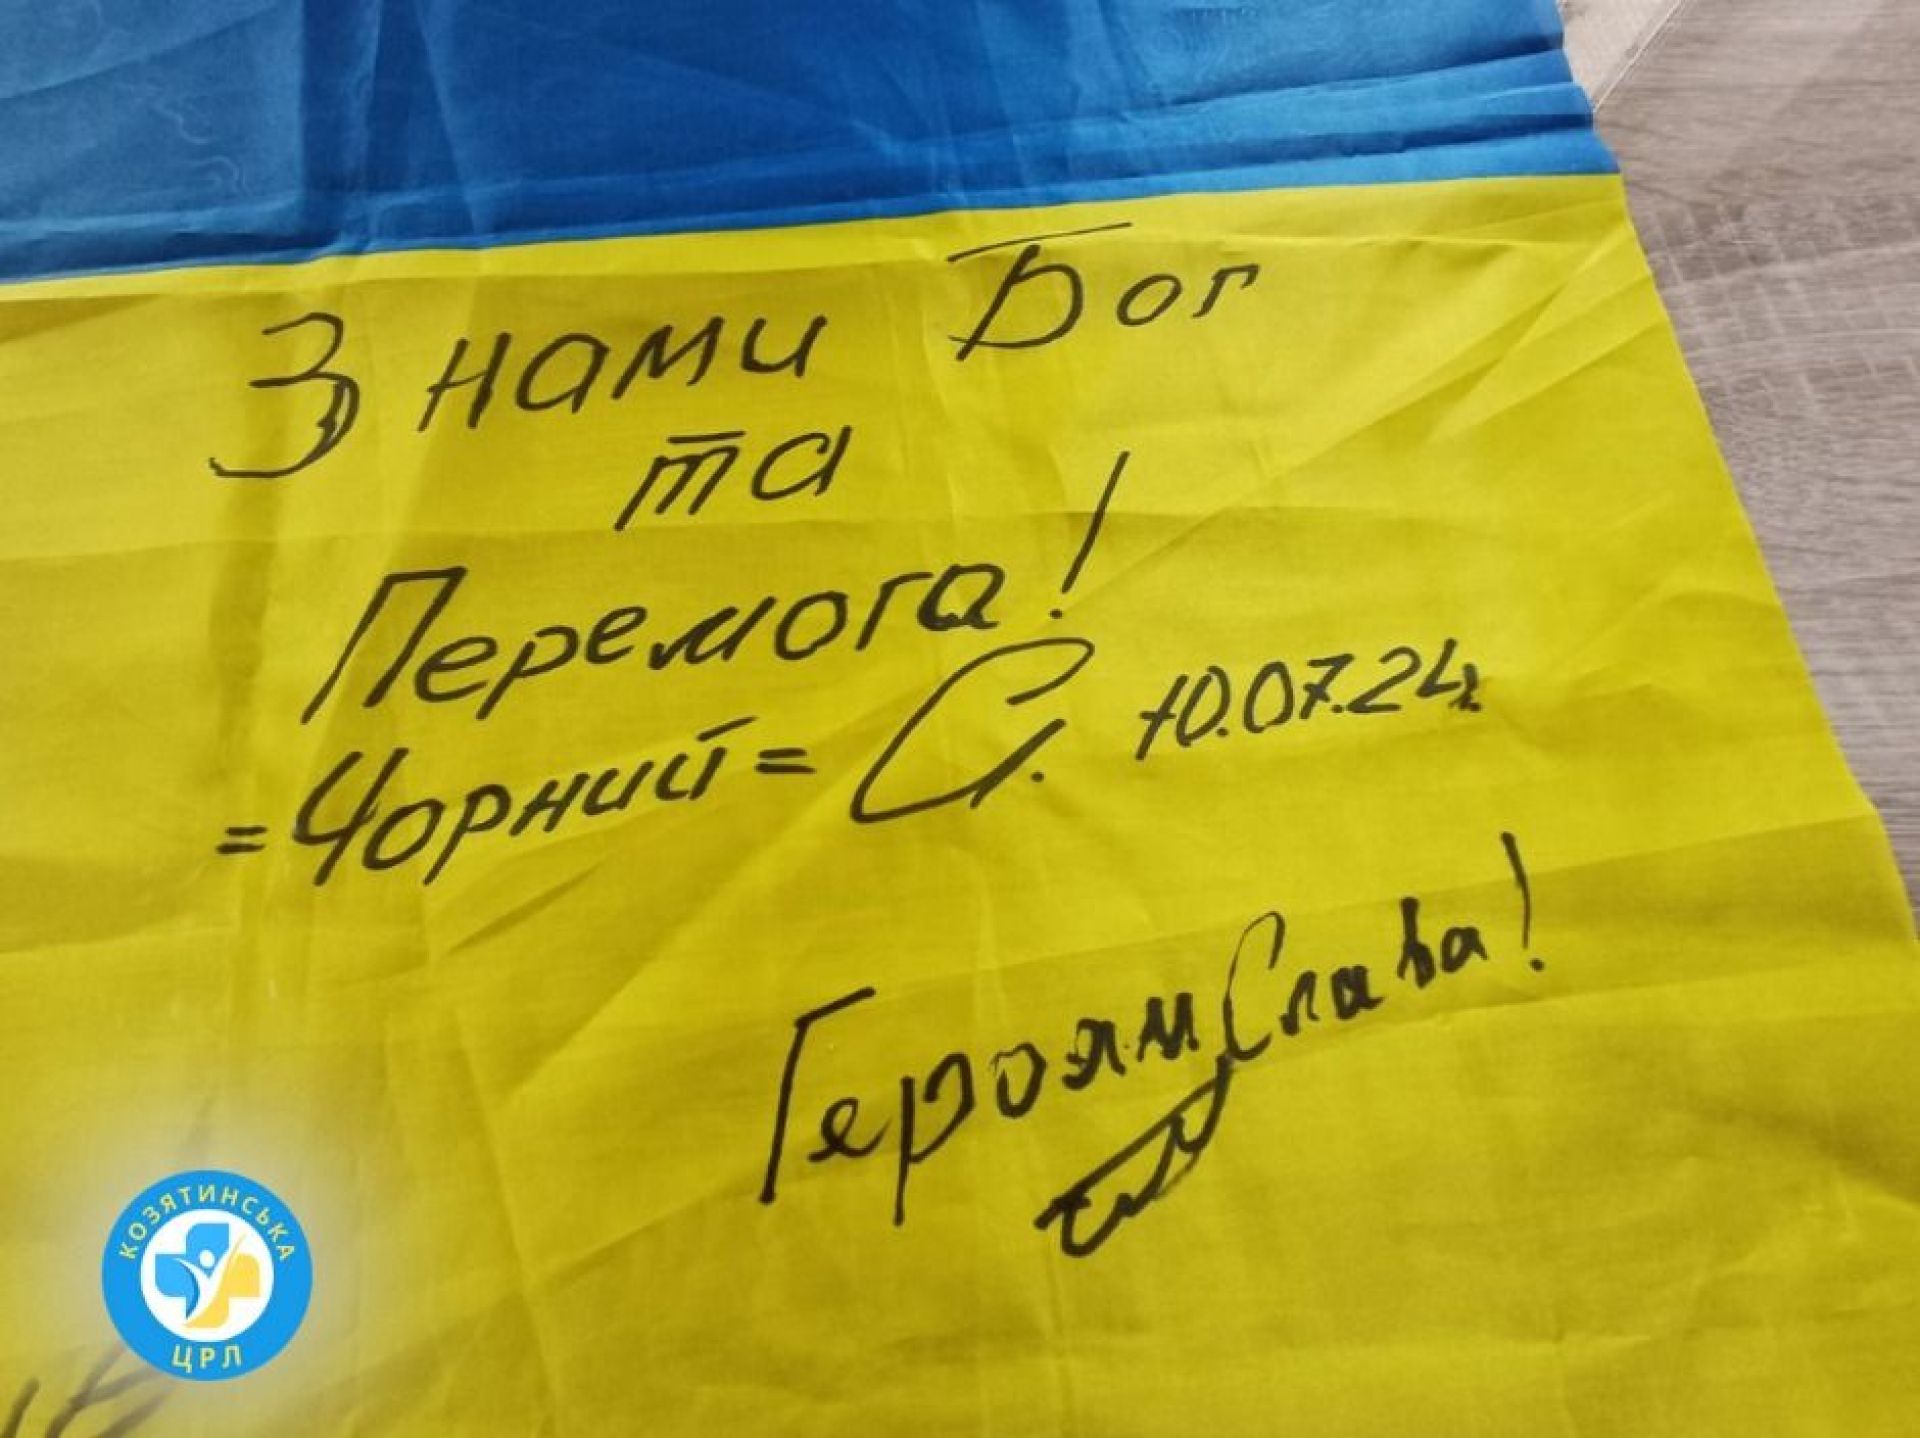 З нами Бог
та
Перемога!
=Чорний= С. 10.07.24р.
Героям Слава!
КОЗЯТИНСЬКА
ЦРЛ